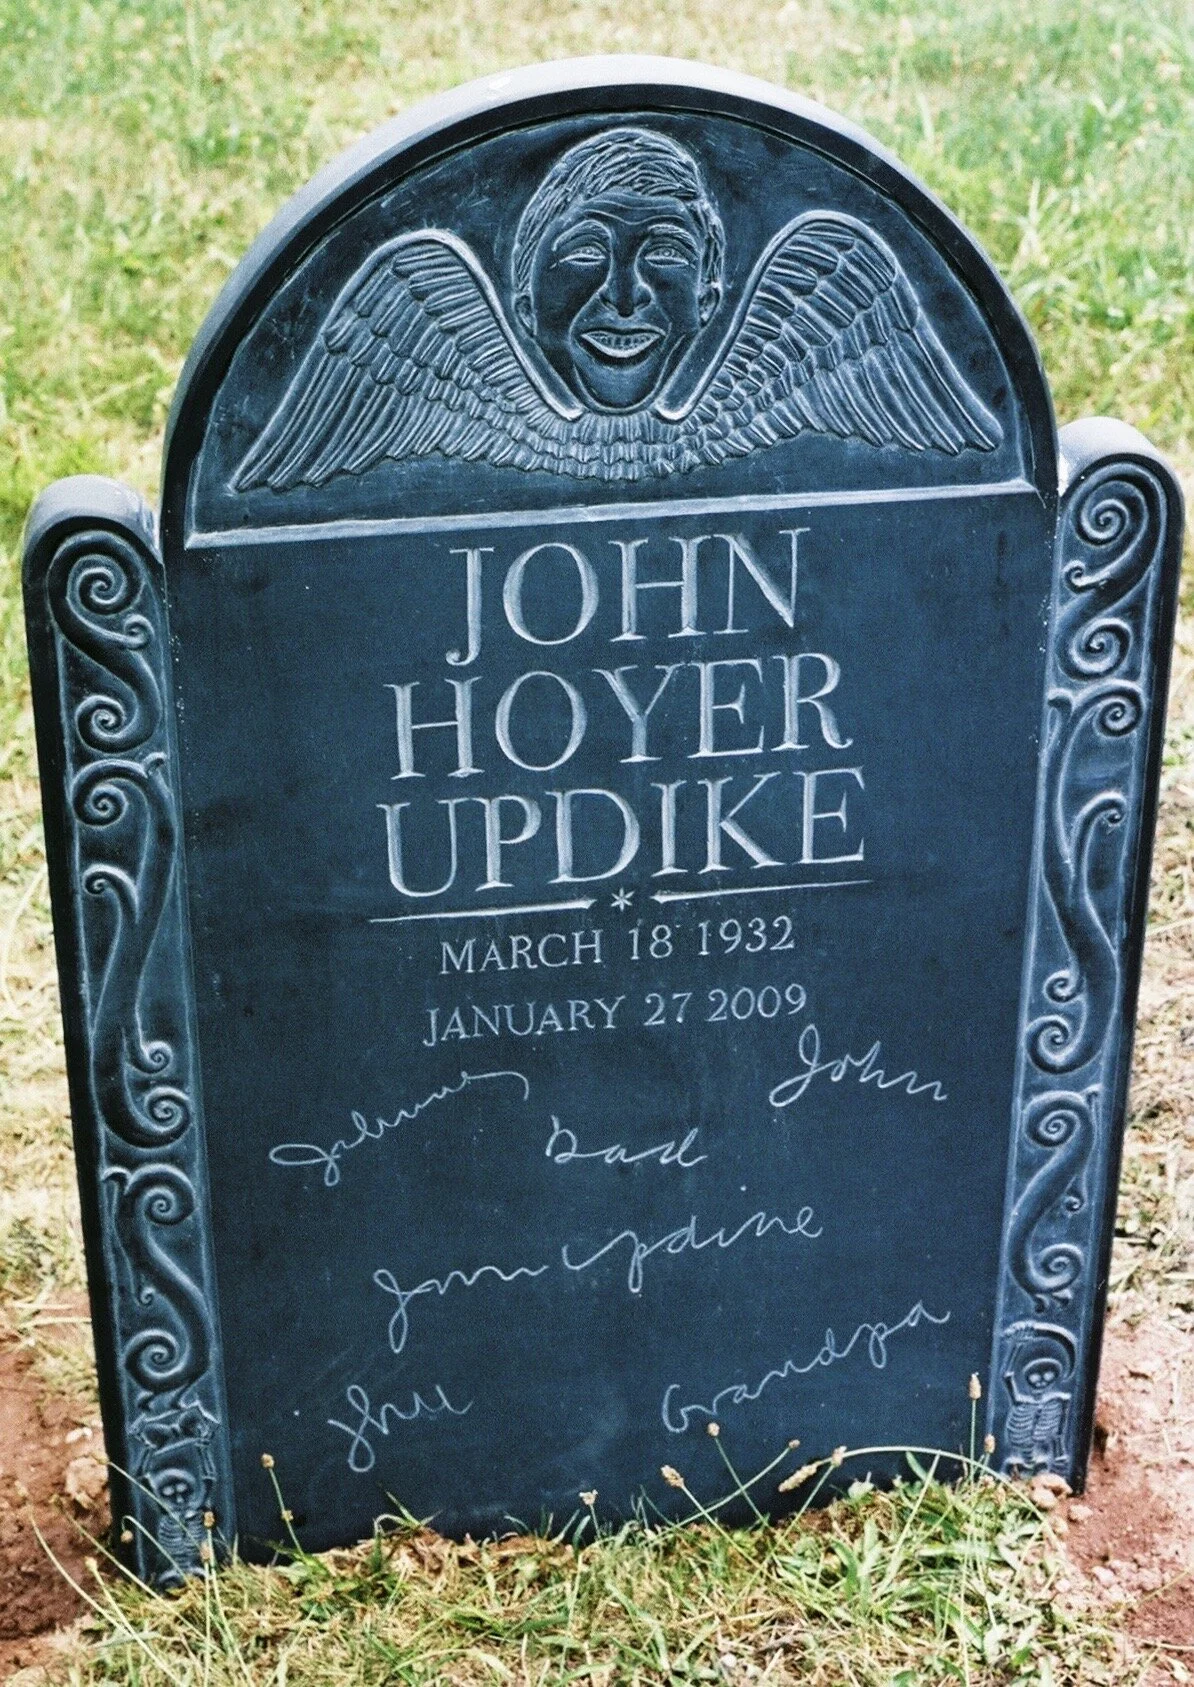 JOHN
HOYER
UPDIKE
MARCH 18 1932
JANUARY 27 2009
Johnny
John
Dad
John Updike
Grandpa